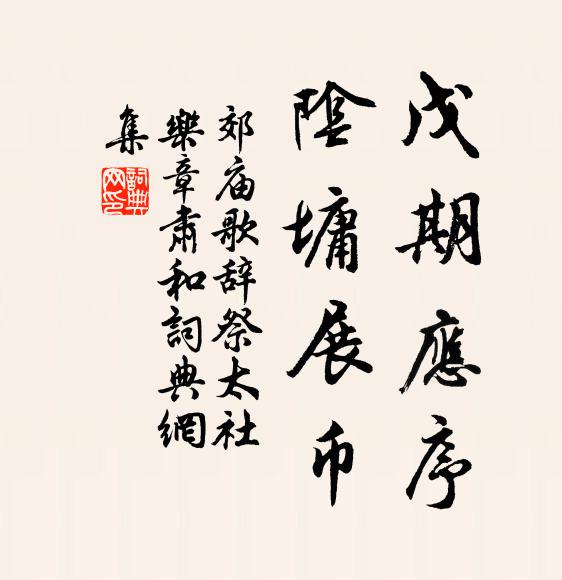 戊期應序
陰墉展币
郊庙歌辞祭太社
樂章肅和詞典網
集
詞典
网印